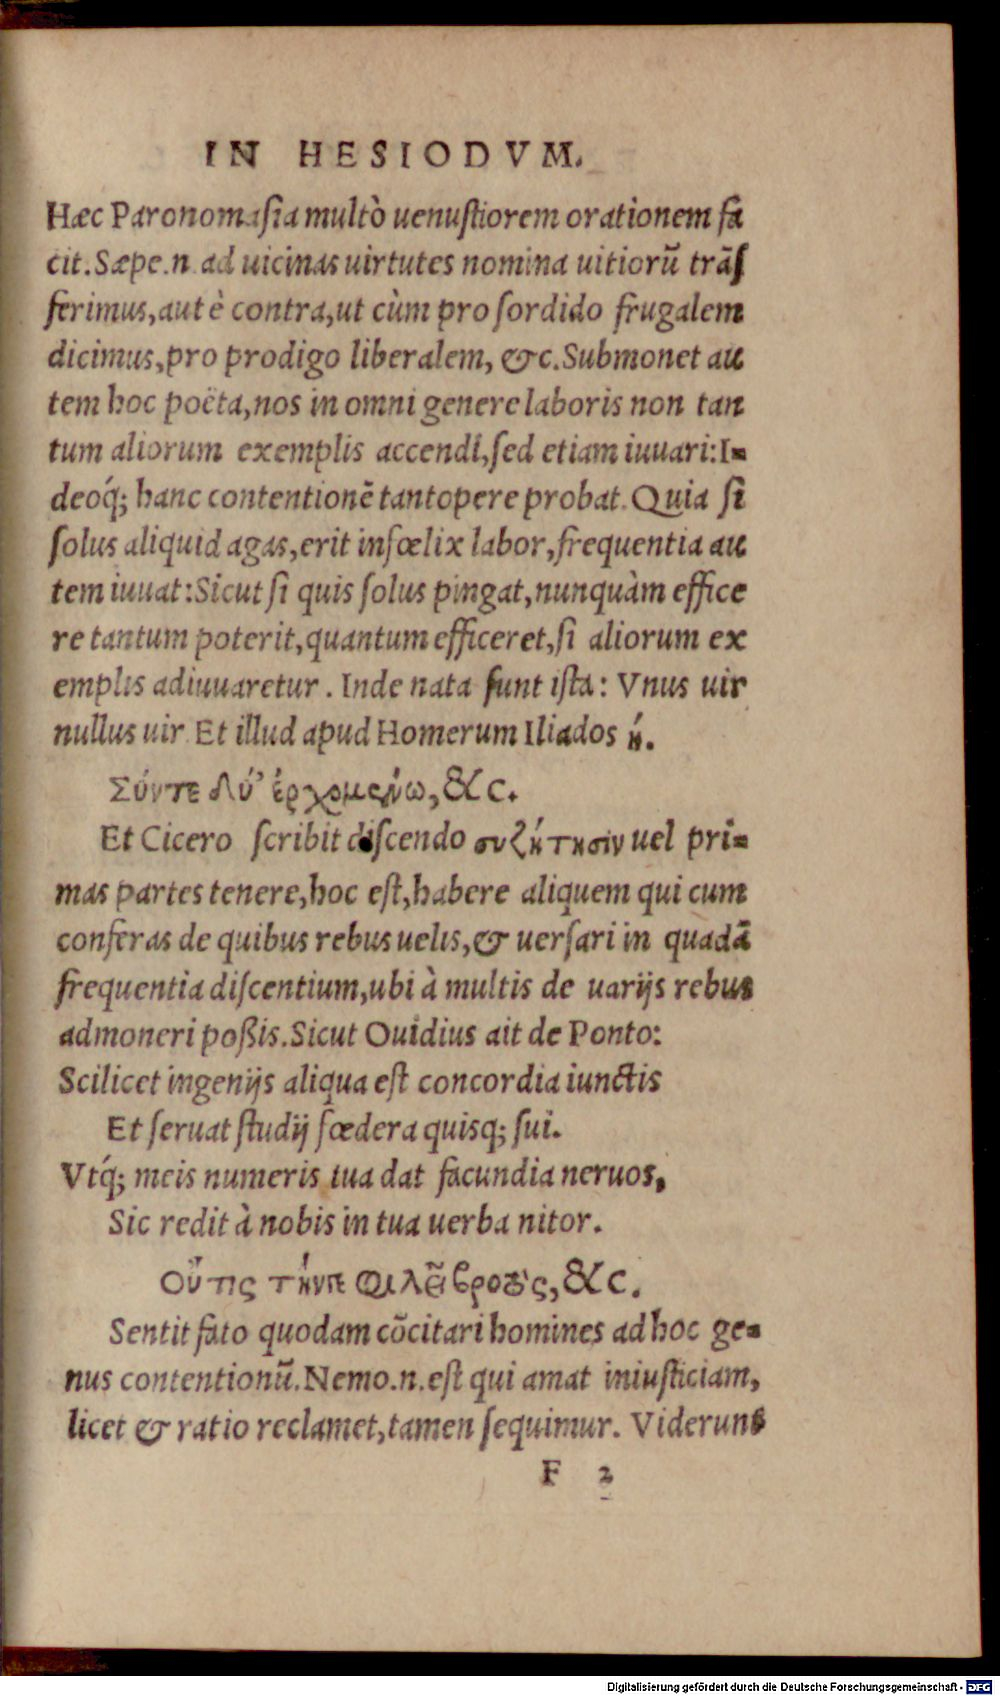 IN HESIODVM.
Hæc Paronomasia multò uenustiorem orationem fa
cit. Sæpe.n. ad uicinas uirtutes nomina uitiorū trāſ
ferimus, aut è contra, ut cùm pro ſordido frugalem
dicimus, pro prodigo liberalem, &c. Submonet au
tem hoc poëta, nos in omni genere laboris non tan
tum aliorum exemplis accendi, ſed etiam iuuari: I-
deoq́; hanc contentionē tantopere probat. Quia ſi
ſolus aliquid agas, erit infœlix labor, frequentia au
tem iuuat: Sicut ſi quis ſolus pingat, nunquàm effice
re tantum poterit, quantum efficeret, ſi aliorum ex
emplis adiuuaretur. Inde nata ſunt iſta: Vnus uir
nullus uir. Et illud apud Homerum Iliados κ́.
Σύντε δύ' ἐρχομένω, &c.
Et Cicero ſcribit diſcendo συζήτησιν uel pri-
mas partes tenere, hoc eſt, habere aliquem qui cum
conferas de quibus rebus uelis, & uerſari in quadā
frequentia diſcentium, ubi à multis de uarijs rebus
admoneri poßis. Sicut Ouidius ait de Ponto:
Scilicet ingenijs aliqua eſt concordia iunctis
Et ſeruat ſtudij fœdera quisq; ſui.
Vtq́; meis numeris tua dat facundia neruos,
Sic redit à nobis in tua uerba nitor.
Οὔτις τήνγε φιλεῖ βροτὸς, &c.
Sentit fato quodam cōcitari homines ad hoc ge-
nus contentionū. Nemo.n. eſt qui amat iniuſticiam,
licet & ratio reclamet, tamen ſequimur. Viderunt
F 2
Digitalisierung gefördert durch die Deutsche Forschungsgemeinschaft - DFG